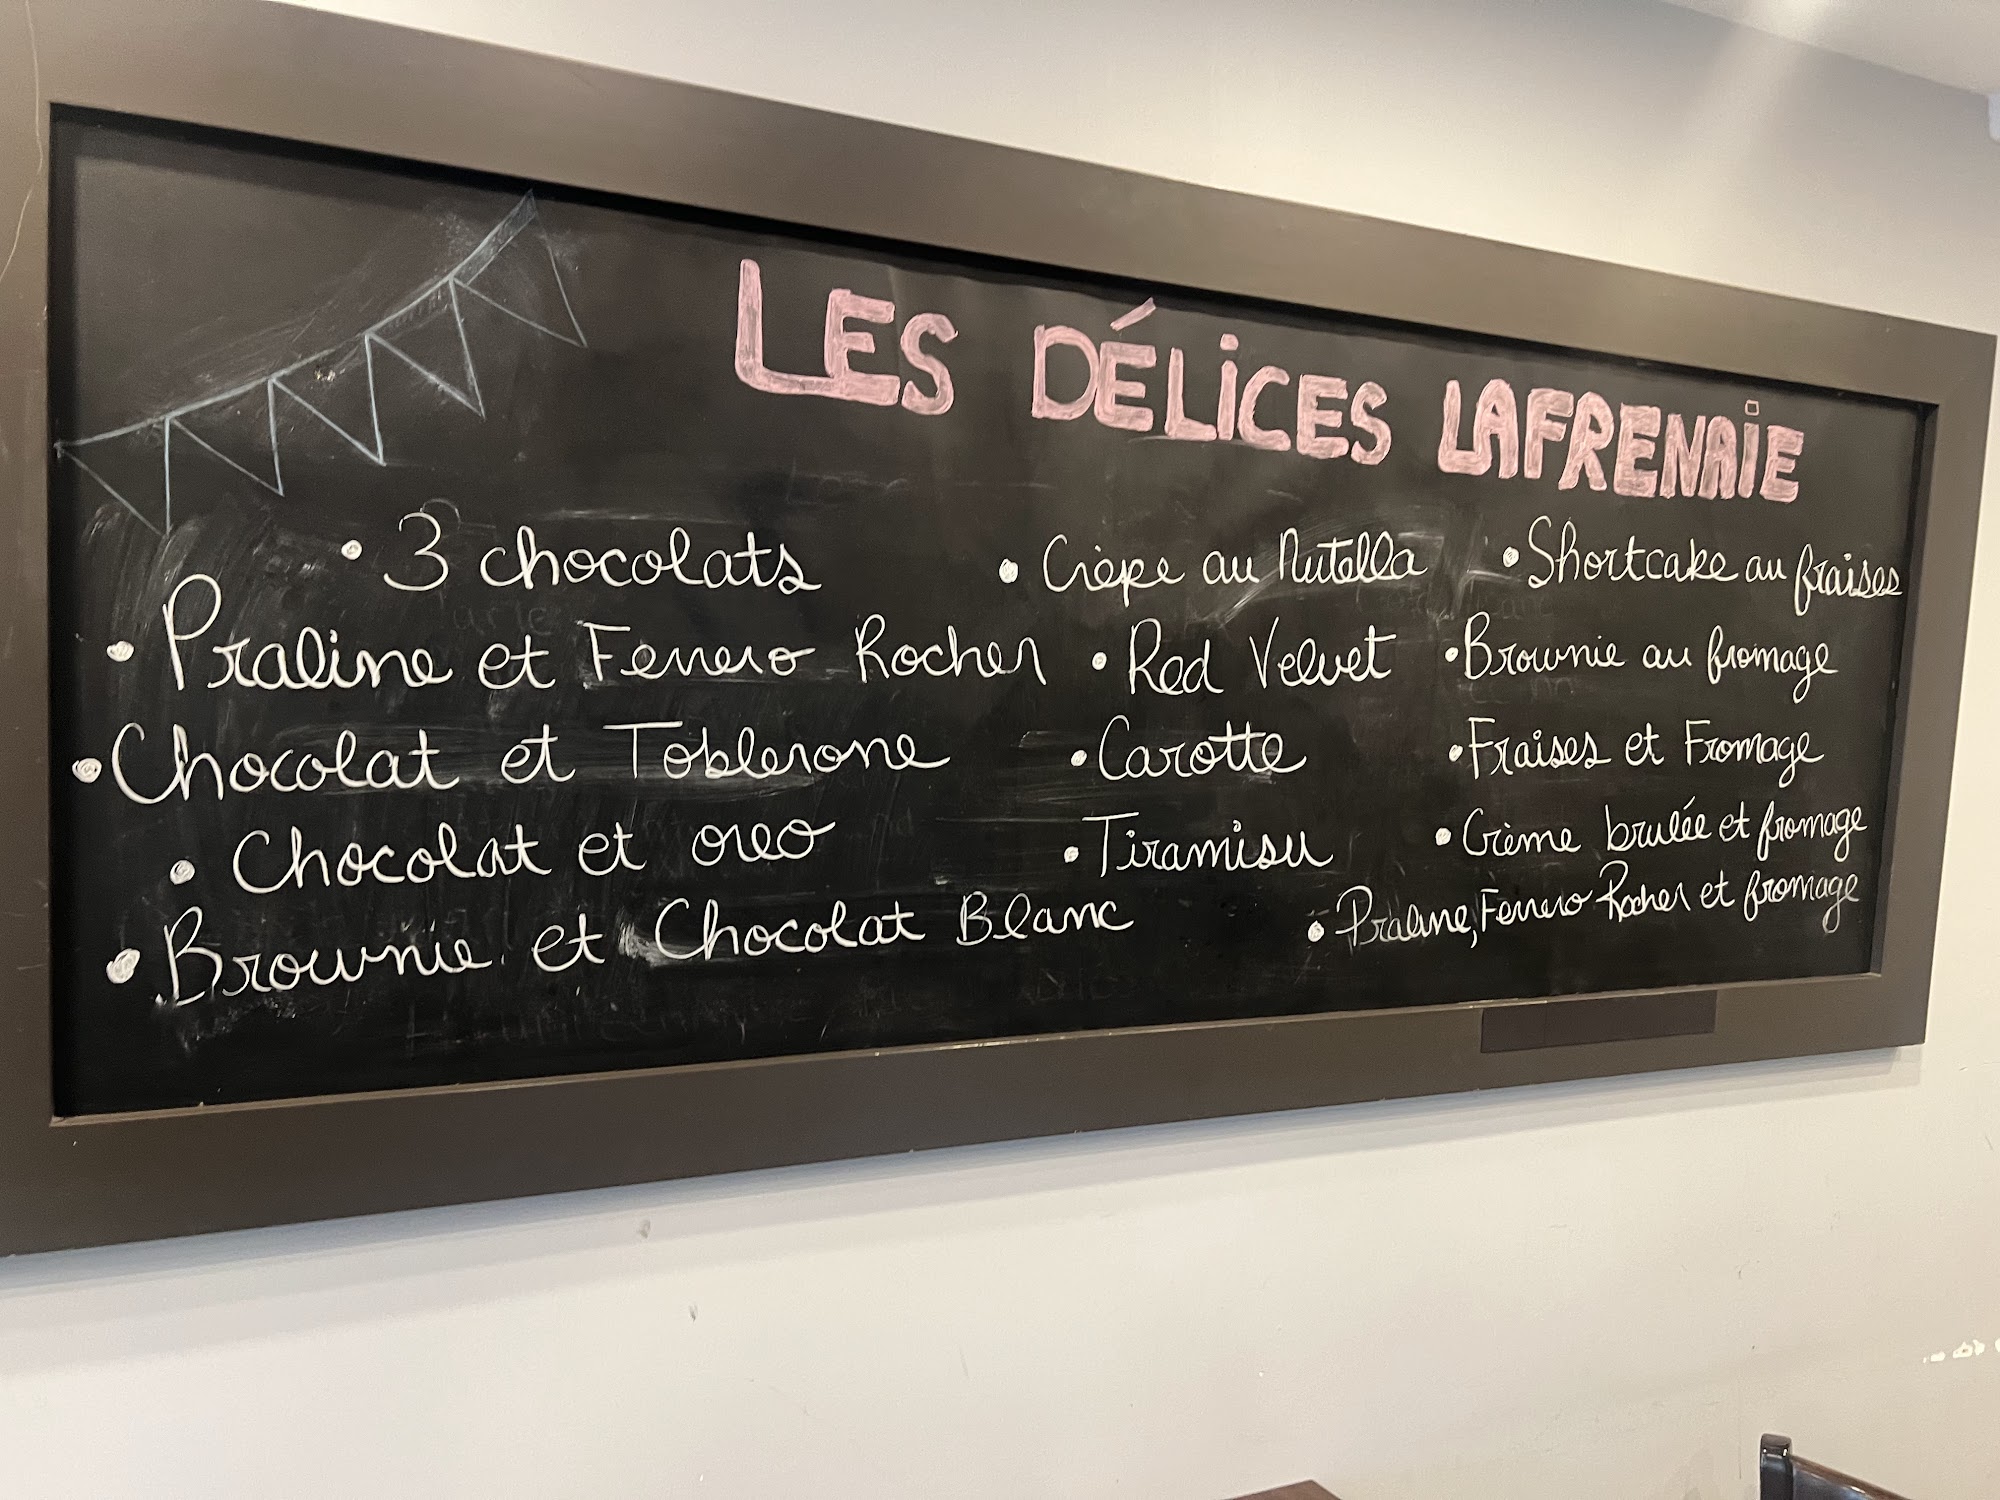 LES DÉLICES LAFRENAIE
• 3 chocolats
• Praline et Ferrero Rocher
• Chocolat et Toblerone
• Chocolat et oreo
• Brownie et Chocolat Blanc
• Crèpe au Nutella
• Red Velvet
• Carotte
• Tiramisu
• Shortcake au fraises
• Brownie au fromage
• Fraises et Fromage
• Crème brulée et fromage
• Praline, Ferrero Rocher et fromage